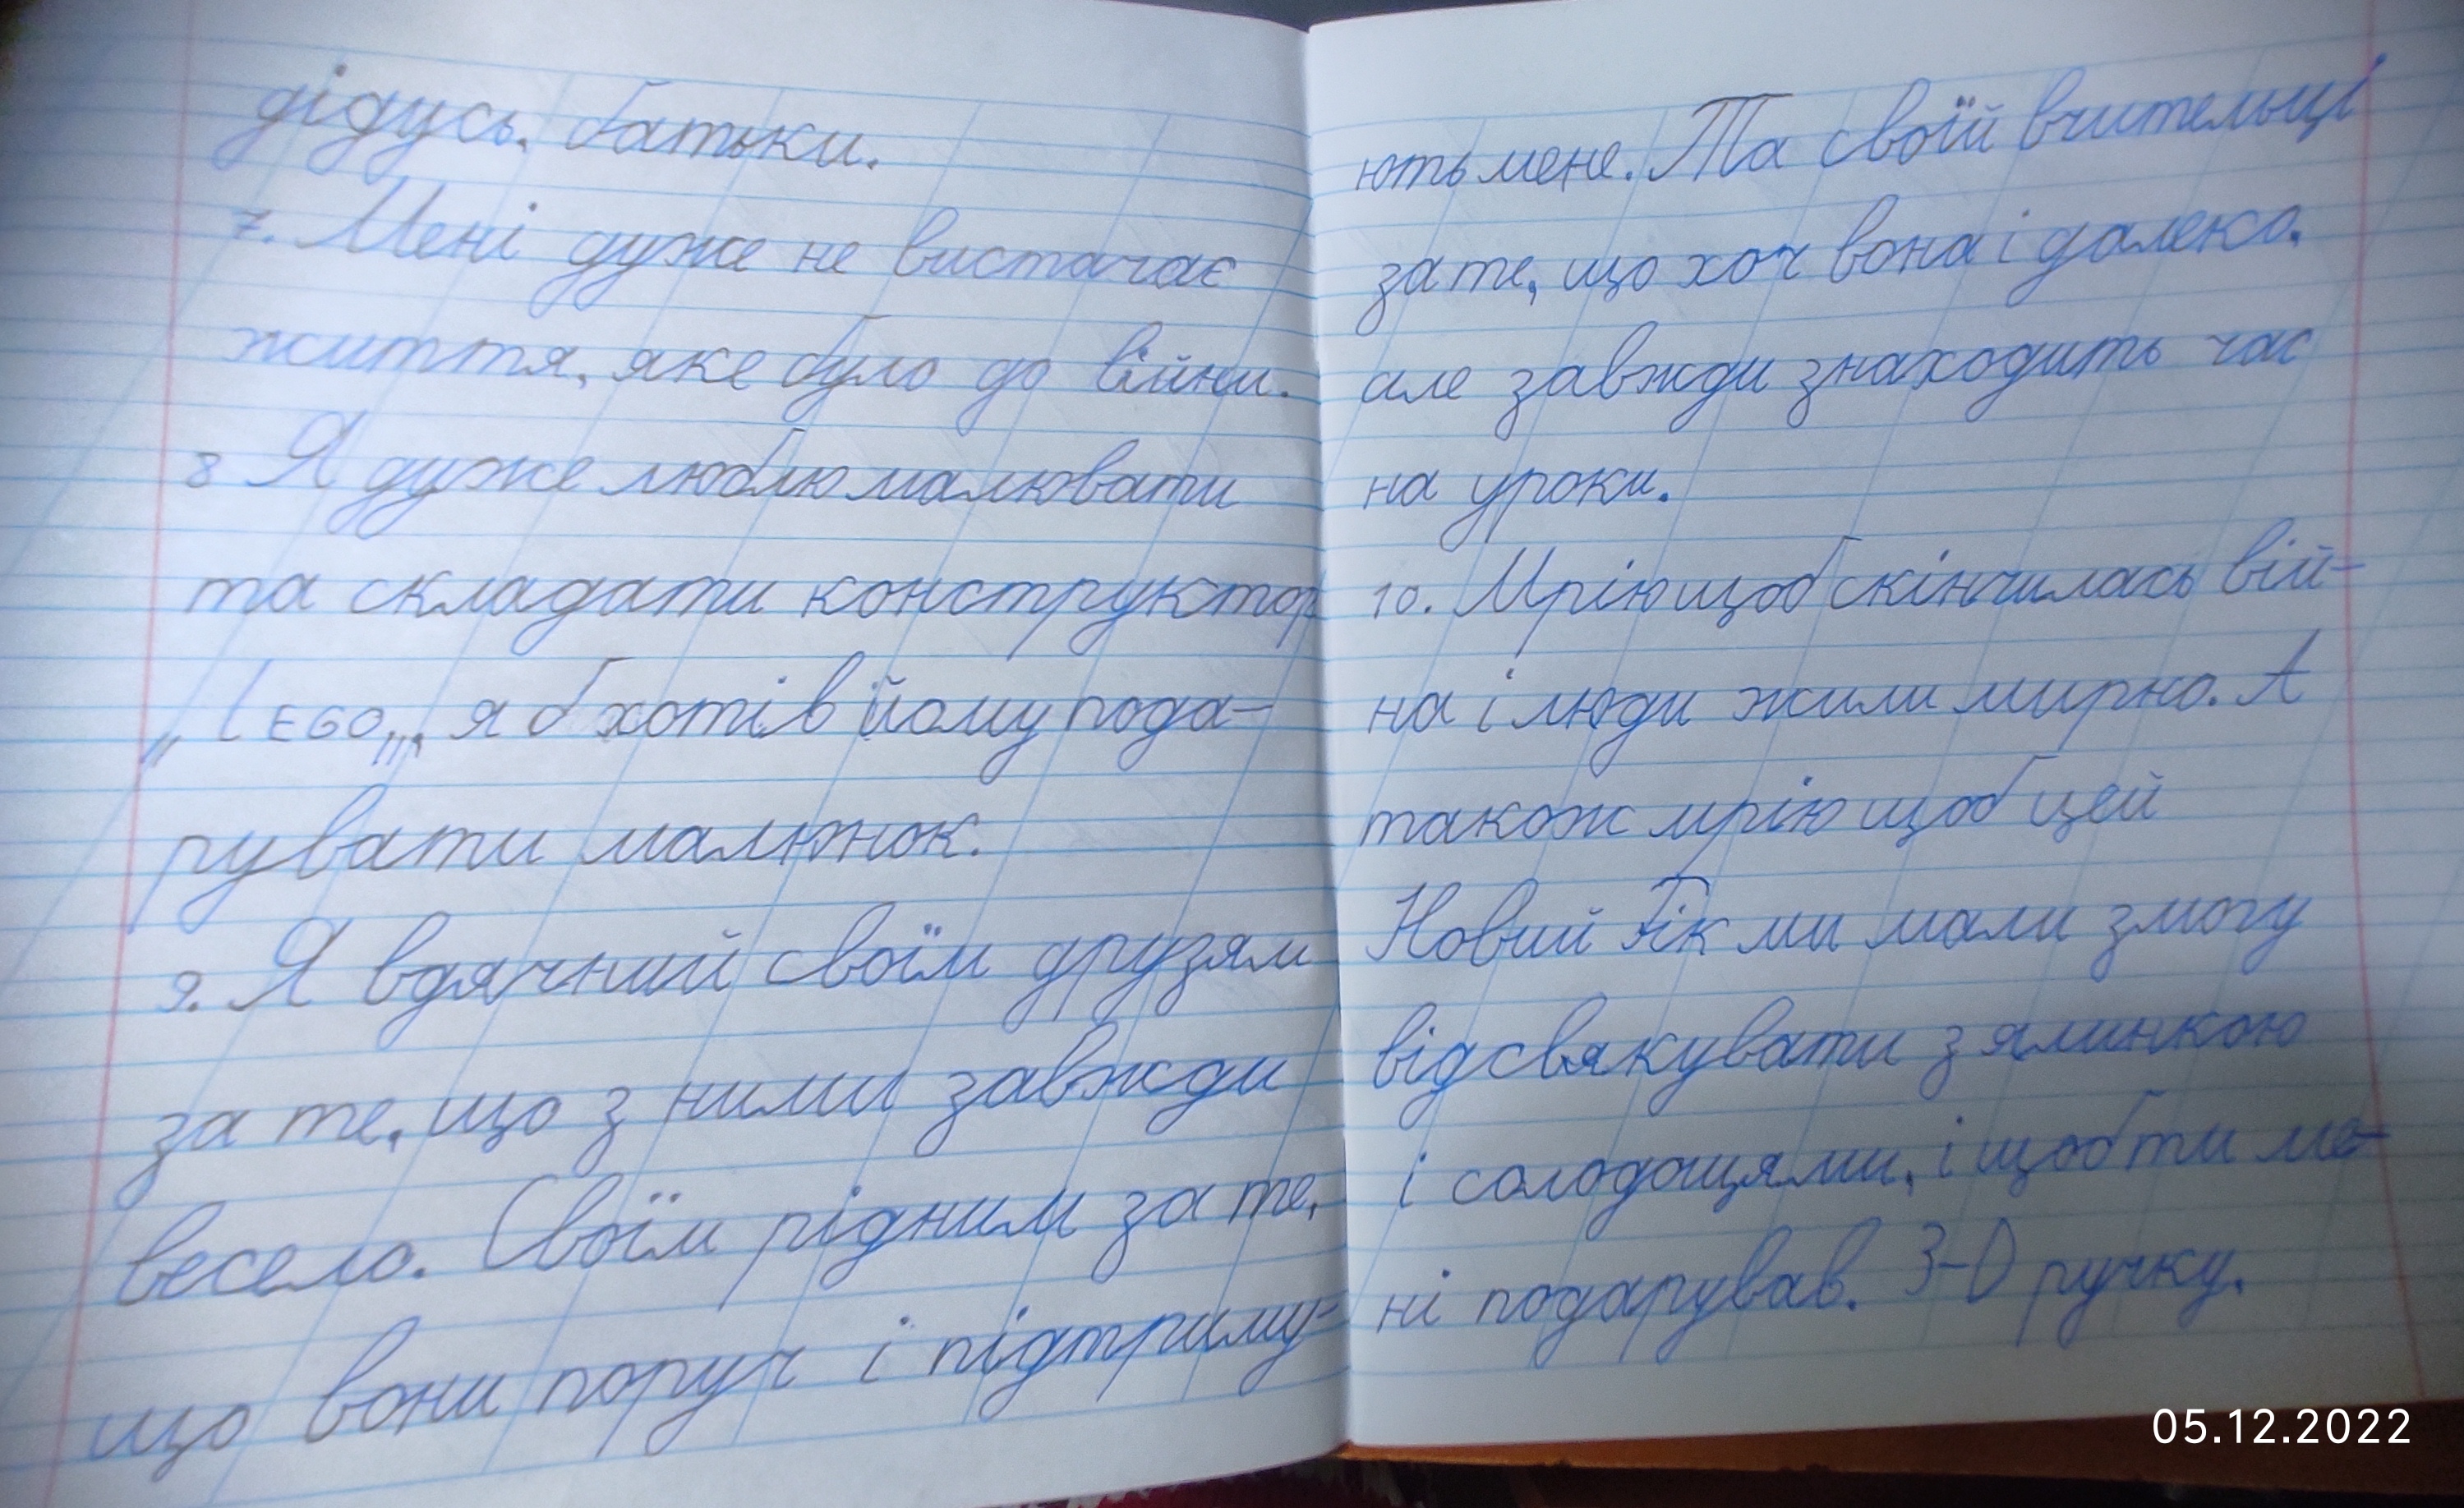 дідусь, батьки.
7. Мені дуже не вистачає
життя, яке було до війни.
8 Я дуже люблю малювати
та складати конструктор
„LEGO„, я б хотів йому пода-
рувати малюнок.
9. Я вдячний своїм друзям
за те, що з ними завжди
весело. Своїм рідним за те,
що вони поруч і підтриму-
ють мене. Та своїй вчительці
за те, що хоч вона і далеко,
але завжди знаходить час
на уроки.
10. Мрію щоб скінчилась вій-
на і люди жили мирно. А
також мрію щоб цей
Новий Рік ми мали змогу
відсвякувати з ялинкою
і солодощями, і щоб ти ме-
ні подарував. 3-D ручку.
05.12.2022